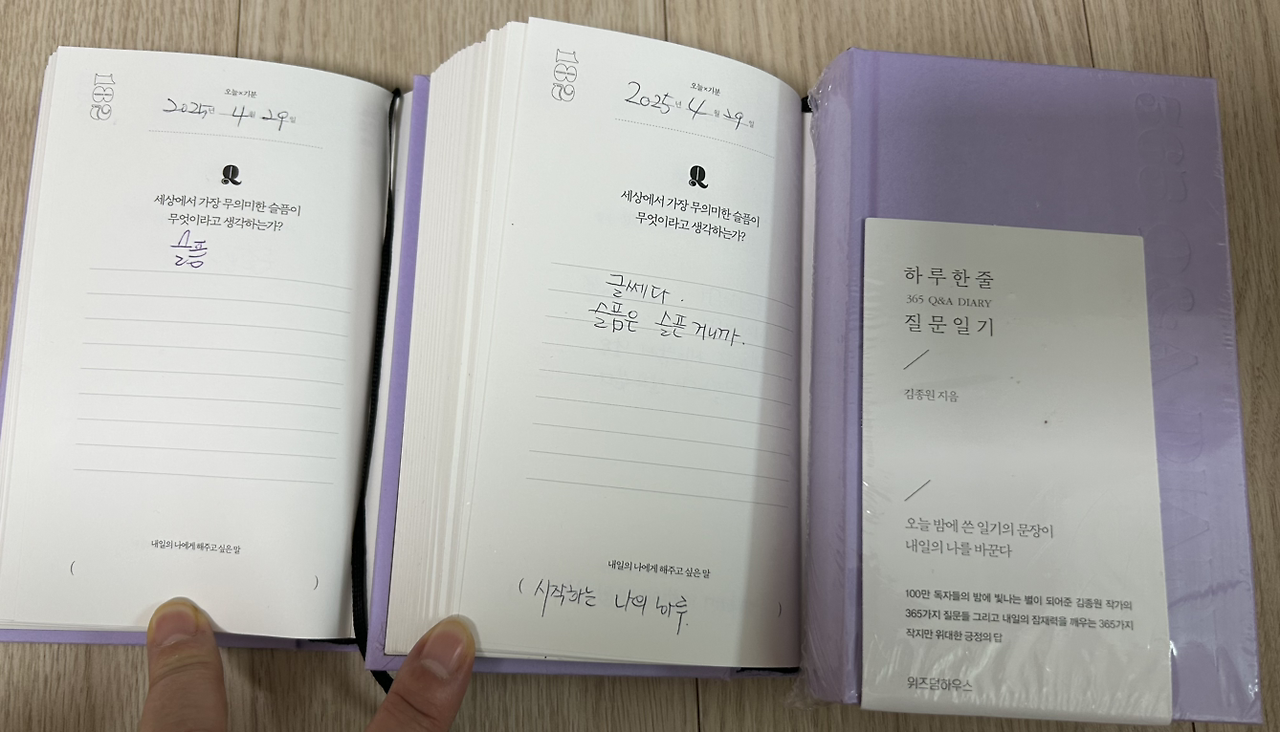 189
오늘×기분
2025년 4월 29일
Q
세상에서 가장 무의미한 슬픔이
무엇이라고 생각하는가?
슬픔
내일의 나에게 해주고 싶은 말
( )
189
오늘×기분
2025년 4월 29일
Q
세상에서 가장 무의미한 슬픔이
무엇이라고 생각하는가?
글쎄다.
슬픔은 슬픈거니까.
내일의 나에게 해주고 싶은 말
( 시작하는 나의 하루. )
하루 한 줄
365 Q&A DIARY
질문일기
김종원 지음
오늘 밤에 쓴 일기의 문장이
내일의 나를 바꾼다
100만 독자들의 밤에 빛나는 별이 되어준 김종원 작가의
365가지 질문들 그리고 내일의 잠재력을 깨우는 365가지
작지만 위대한 긍정의 답
위즈덤하우스